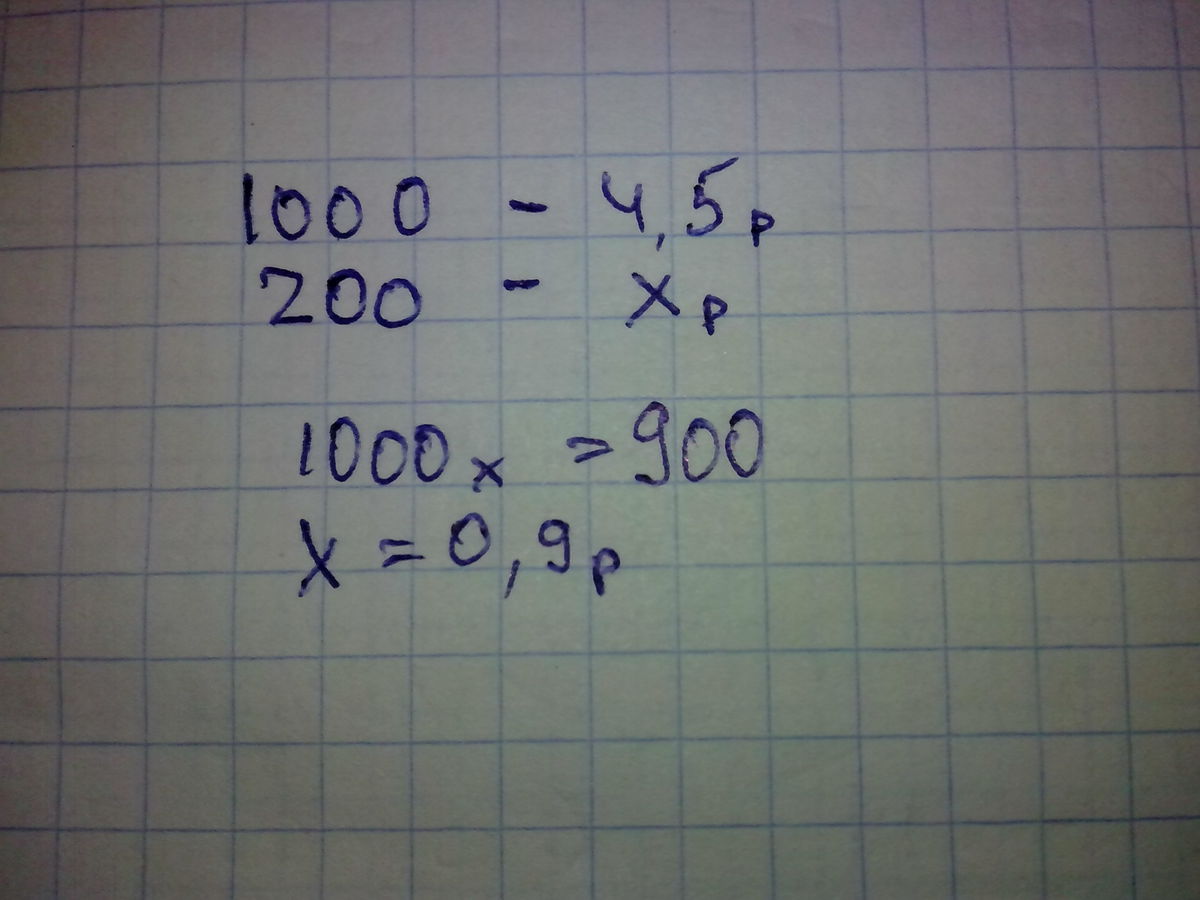 1000 - 4,5р
200 - хр
1000х = 900
х = 0,9р